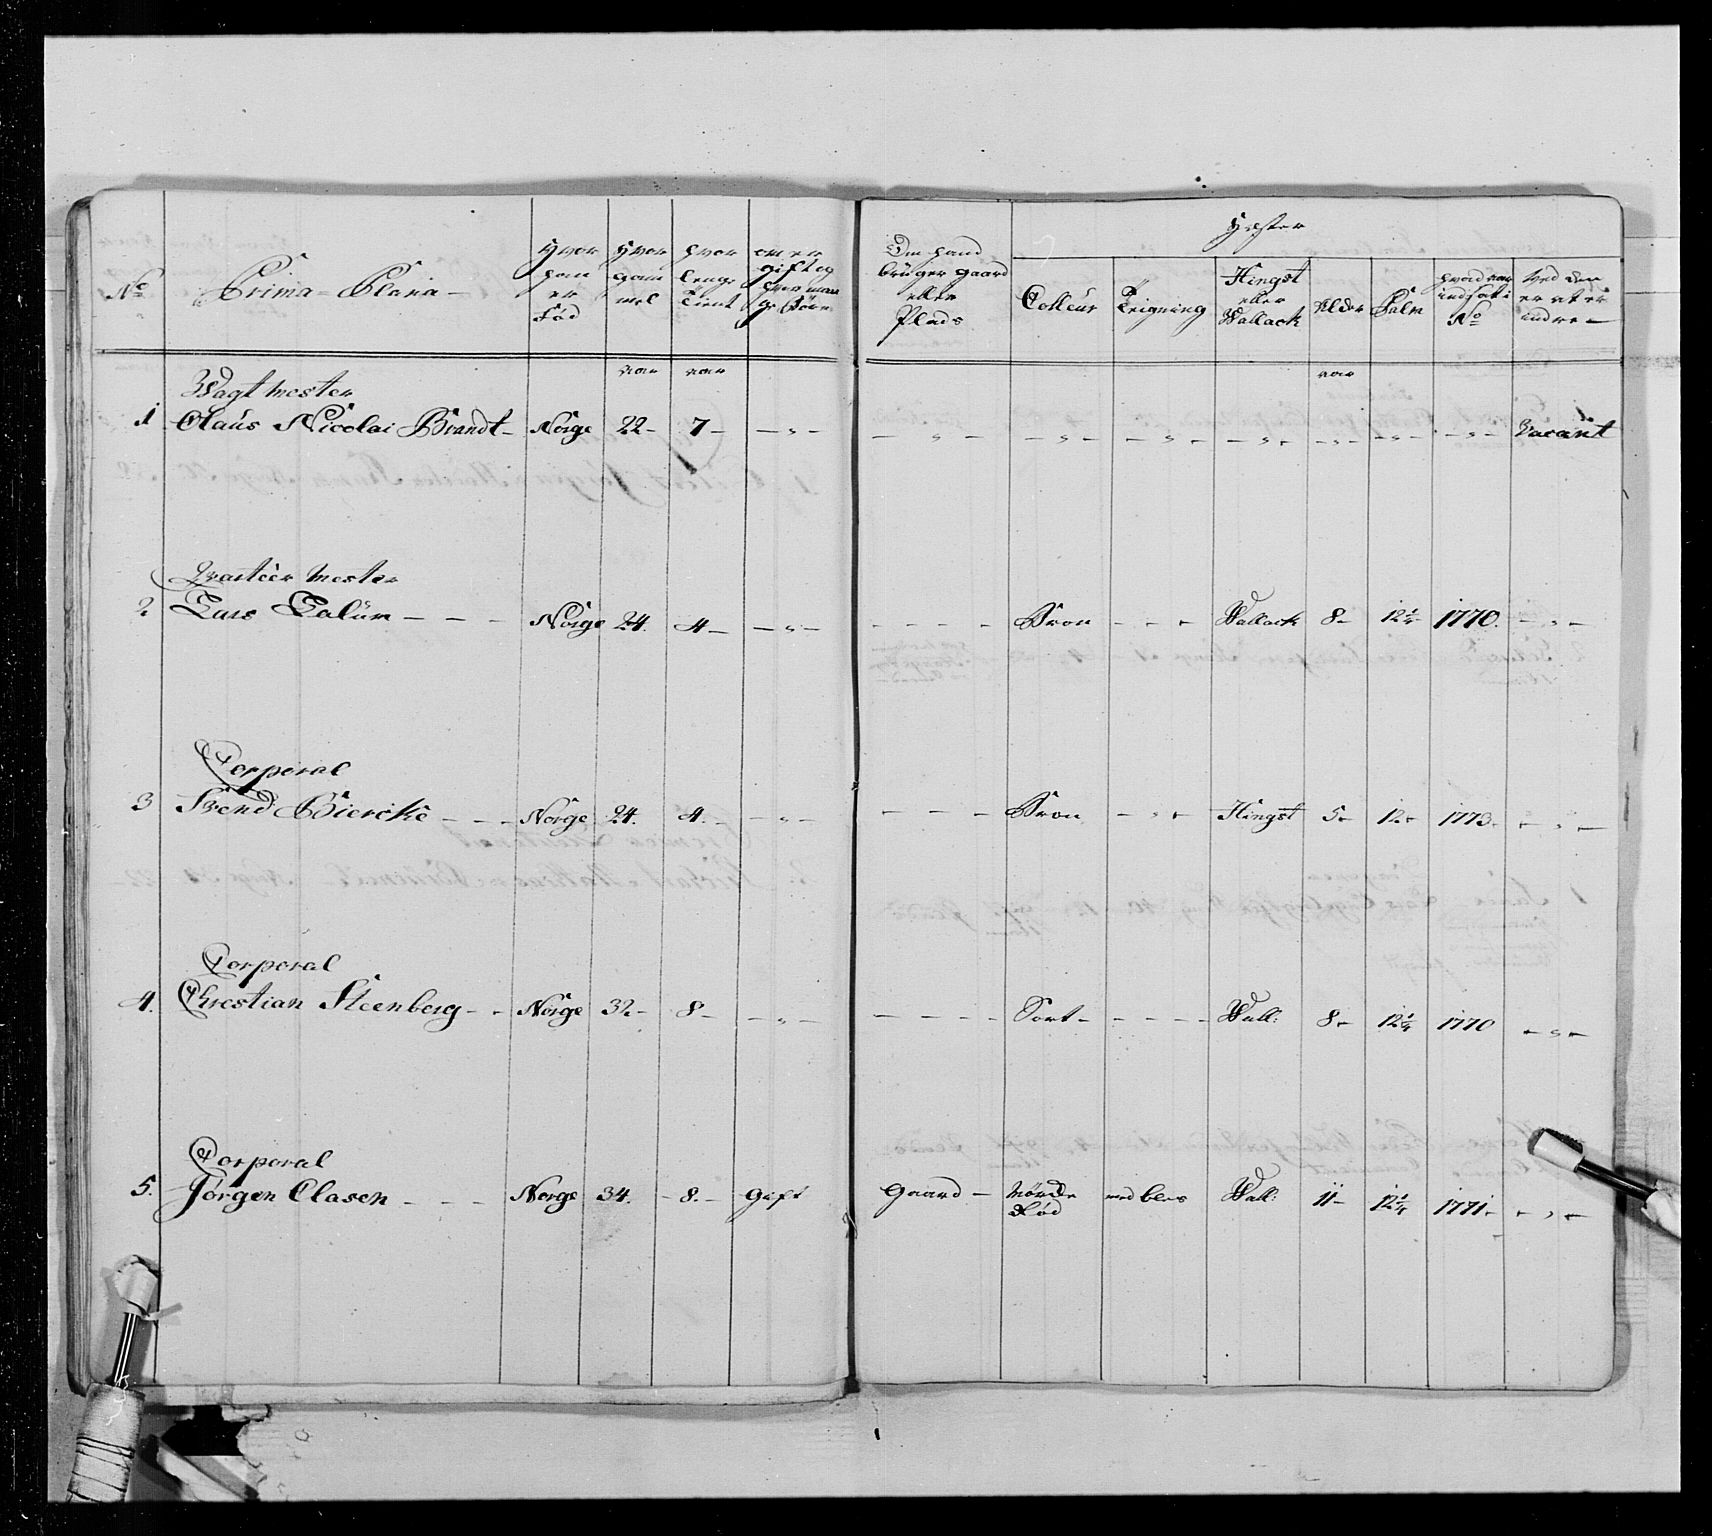 No
Prima Plana
Hvor
han
er
Fød
Hvor
gam
mel
hvor
lenge
tient
om er
gift og
hvor man
ge Børn
Om hand
brüger gaard
eller
Plads
Hæster
Colleur
Teigning
Hingst
eller
Wallack
Alder
Palm
hvad aar
indsat i
No
Ved den
er at er
indre
aar aar aar
Wagtmester
1 Claus Nicolai Brandt - Norge 22 - 7 - - " - - " - - " - - " - - " - - " - - " - - " - Vacant
Qvarteer Mester
2 Lars - - - Norge 24. 4 - - " - - - - - Bron - - - Wallack 8 - 12 1/4 1770. - " -
Corporal
3 Svend Biercke - - - Norge 24. 4. - - " - - - - Bron - " - Hingst 5 - 12 - 1773. - " -
Corporal
4. Christian Steenberg - - Norge 32 - 8 - - " - - - - - Sort - - - - - Wall: 8 - 12 1/4 1770 - " -
Corporal
5. Jørgen Clasen - - - Norge 34. - 8. - Gift Gaard - Mörk
Rød med bles Wall: 11 - 12 1/4 1771 - - " -